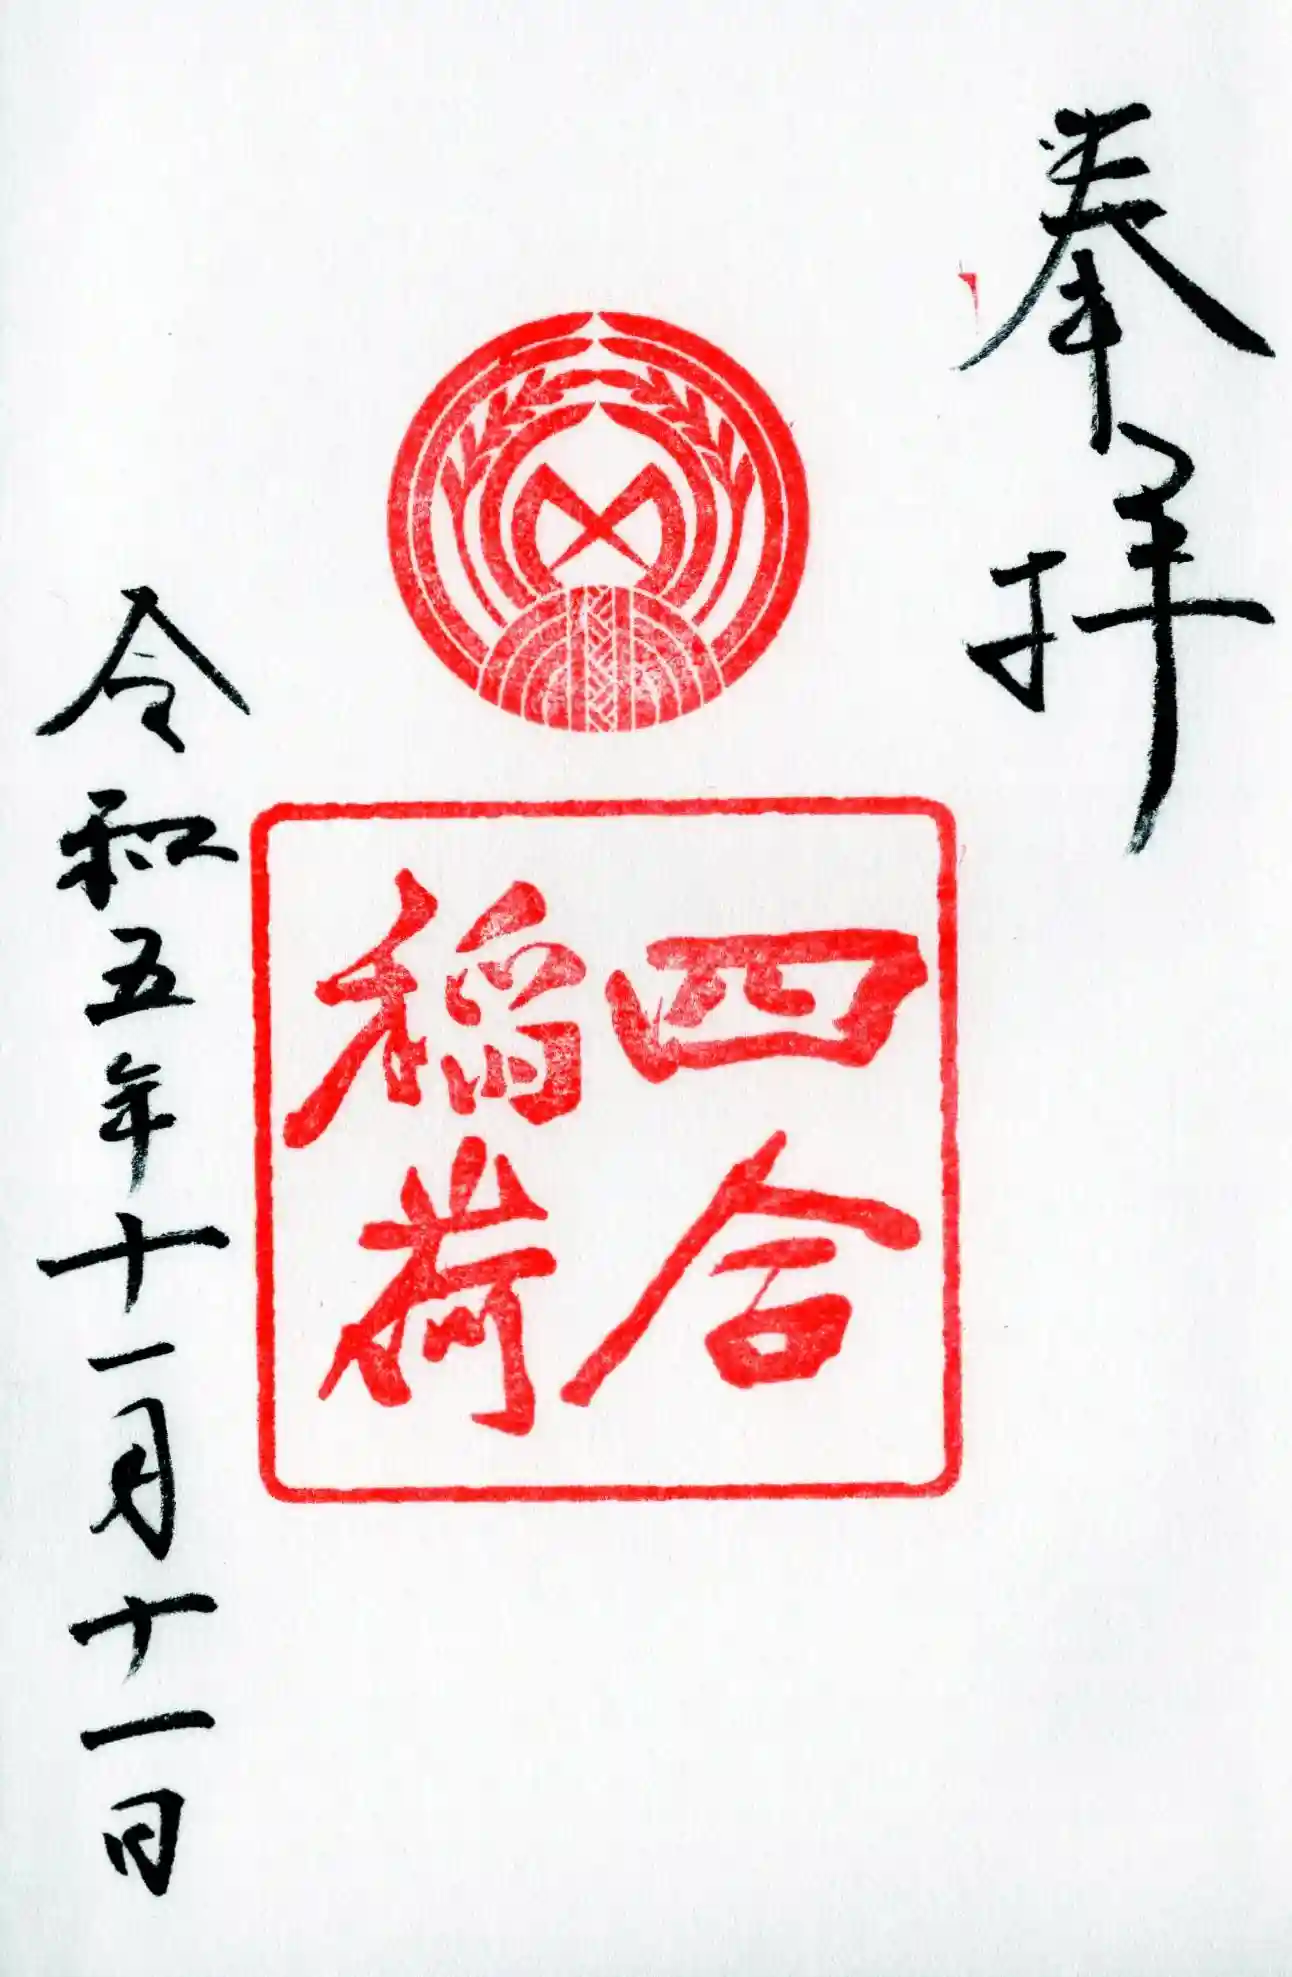 奉拝
四合
稲荷
令和五年十一月十一日